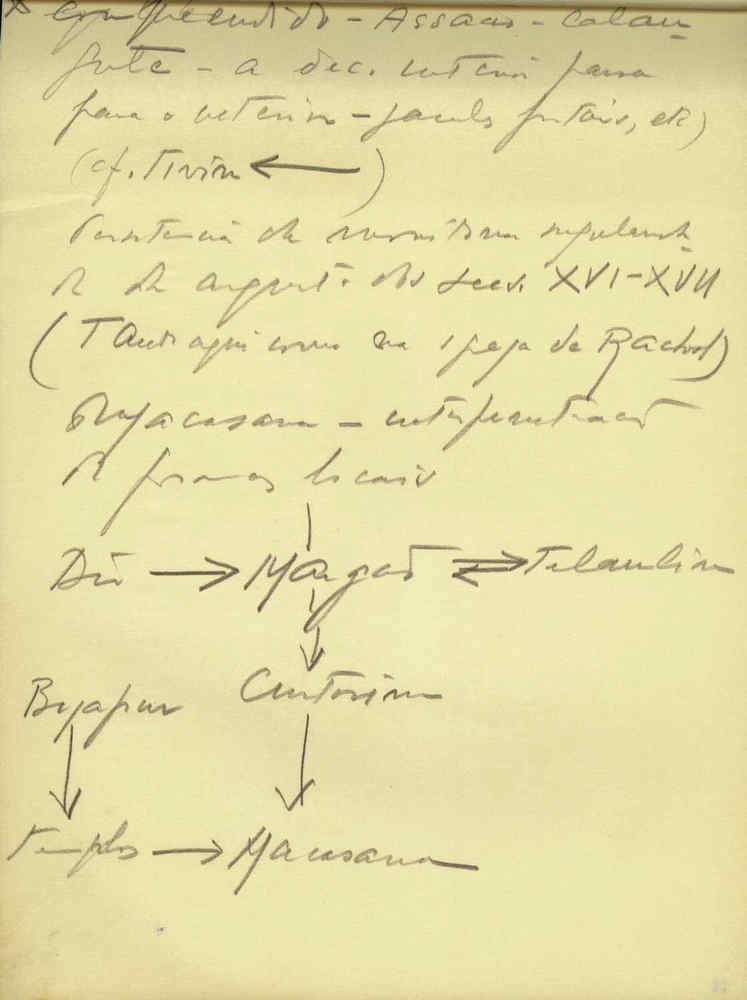 compreendido - Assaos - Calan-
gute - a dec. interna passa
para o exterior - janelas frontais, etc)
(cf. Tivim ← )
Persistencia de
de arquit. dos secs. XVI-XVII
(Tanto aqui como na igreja de Rachol)
Macasana - interpenetração
de formas locais
Diu → Margão ⇄ Telaulim
Byapur Curtorim
Templos → Macasana